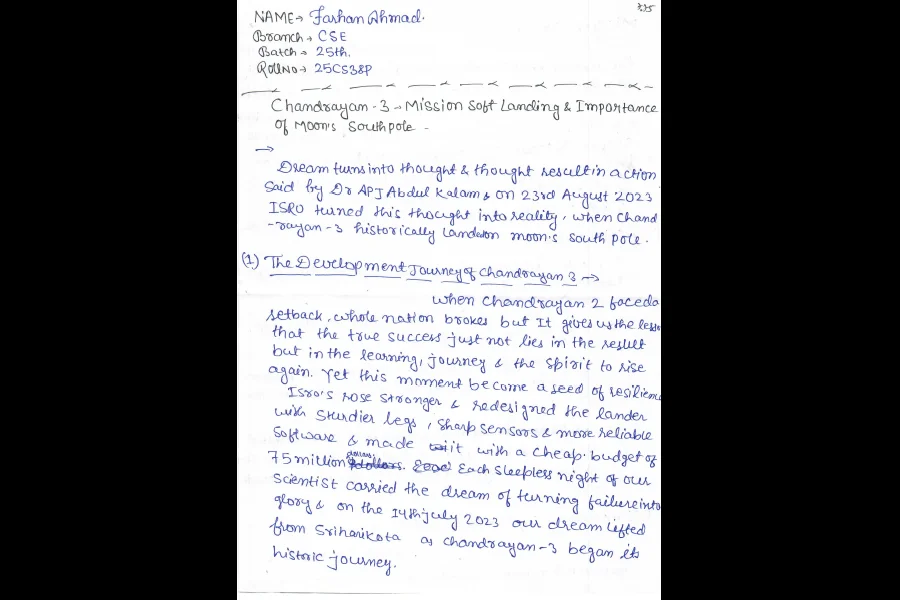 NAME → Farhan Ahmad.
Branch → CSE
Batch → 25th.
RollNo → 25CS38P
Chandrayan-3 → Mission Soft Landing & Importance
Of Moon's Southpole -
→
Dream turns into thought & thought result in action
said by Dr APJ Abdul Kalam & on 23rd August 2023
ISRO turned this thought into reality, when Chand
-rayan-3 historically landed on moon's south pole.
(1) The Development Journey of Chandrayan 3 →
when Chandrayan 2 faced a
setback, whole nation brokes but It gives us the lesson
that the true success just not lies in the result
but in the learning, journey & the spirit to rise
again. Yet this moment become a seed of resilience
Isro's rose stronger & redesigned the lander
with sturdier legs, sharp sensors & more reliable
Software & made it with a cheap budget of
75 million dollars. Each sleepless night of our
scientist carried the dream of turning failure into
glory & on the 14th july 2023 our dream lifted
from Sriharikota as Chandrayan-3 began its
historic journey.